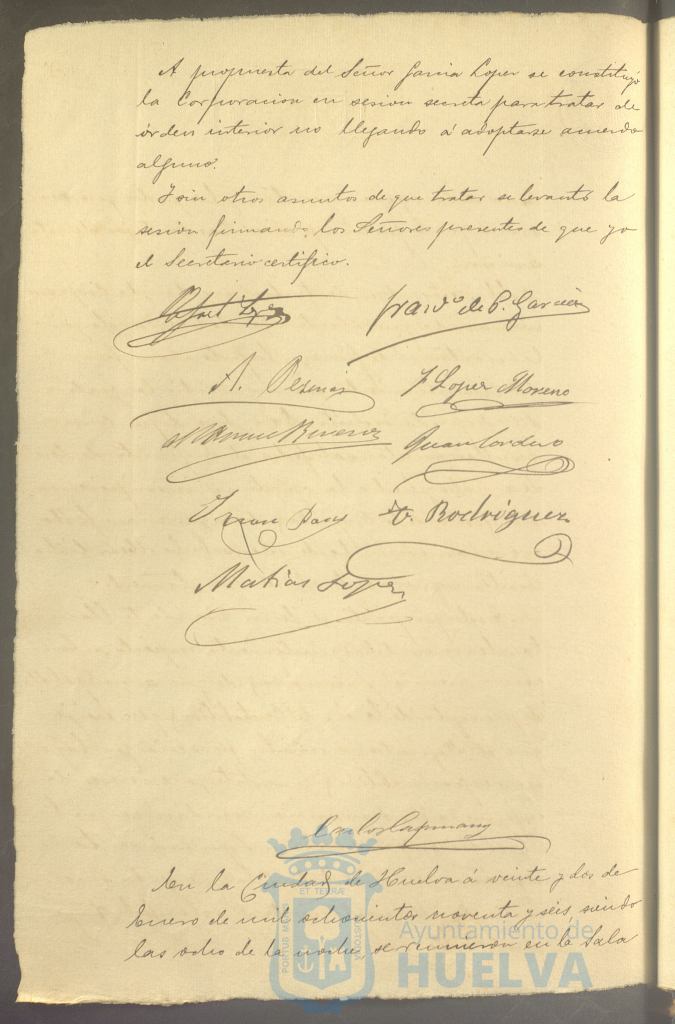 A propuesta del Señor Garcia Lopez se constituyó
la Corporacion en sesion secreta para tratar de
órden interior no llegando á adoptarse acuerdo
alguno.
Y sin otros asuntos de que tratar se levantó la
sesion firmando los Señores presentes de que yo
el Secretario certifico.
Rafael Lopez
Franco de P. Garcia
A. F. Lopez Moreno
Manuel Rivera Juan Cordero
Juan V. Rodriguez
Matias Lopez
Carlos Capmany
En la Ciudad de Huelva á veinte y dos de
Enero de mil ochocientos noventa y séis, siendo
las ocho de la noche, se reunieron en la Sala
PORTUS MARIS ET TERRÆ CUSTODIA
Ayuntamiento de
HUELVA